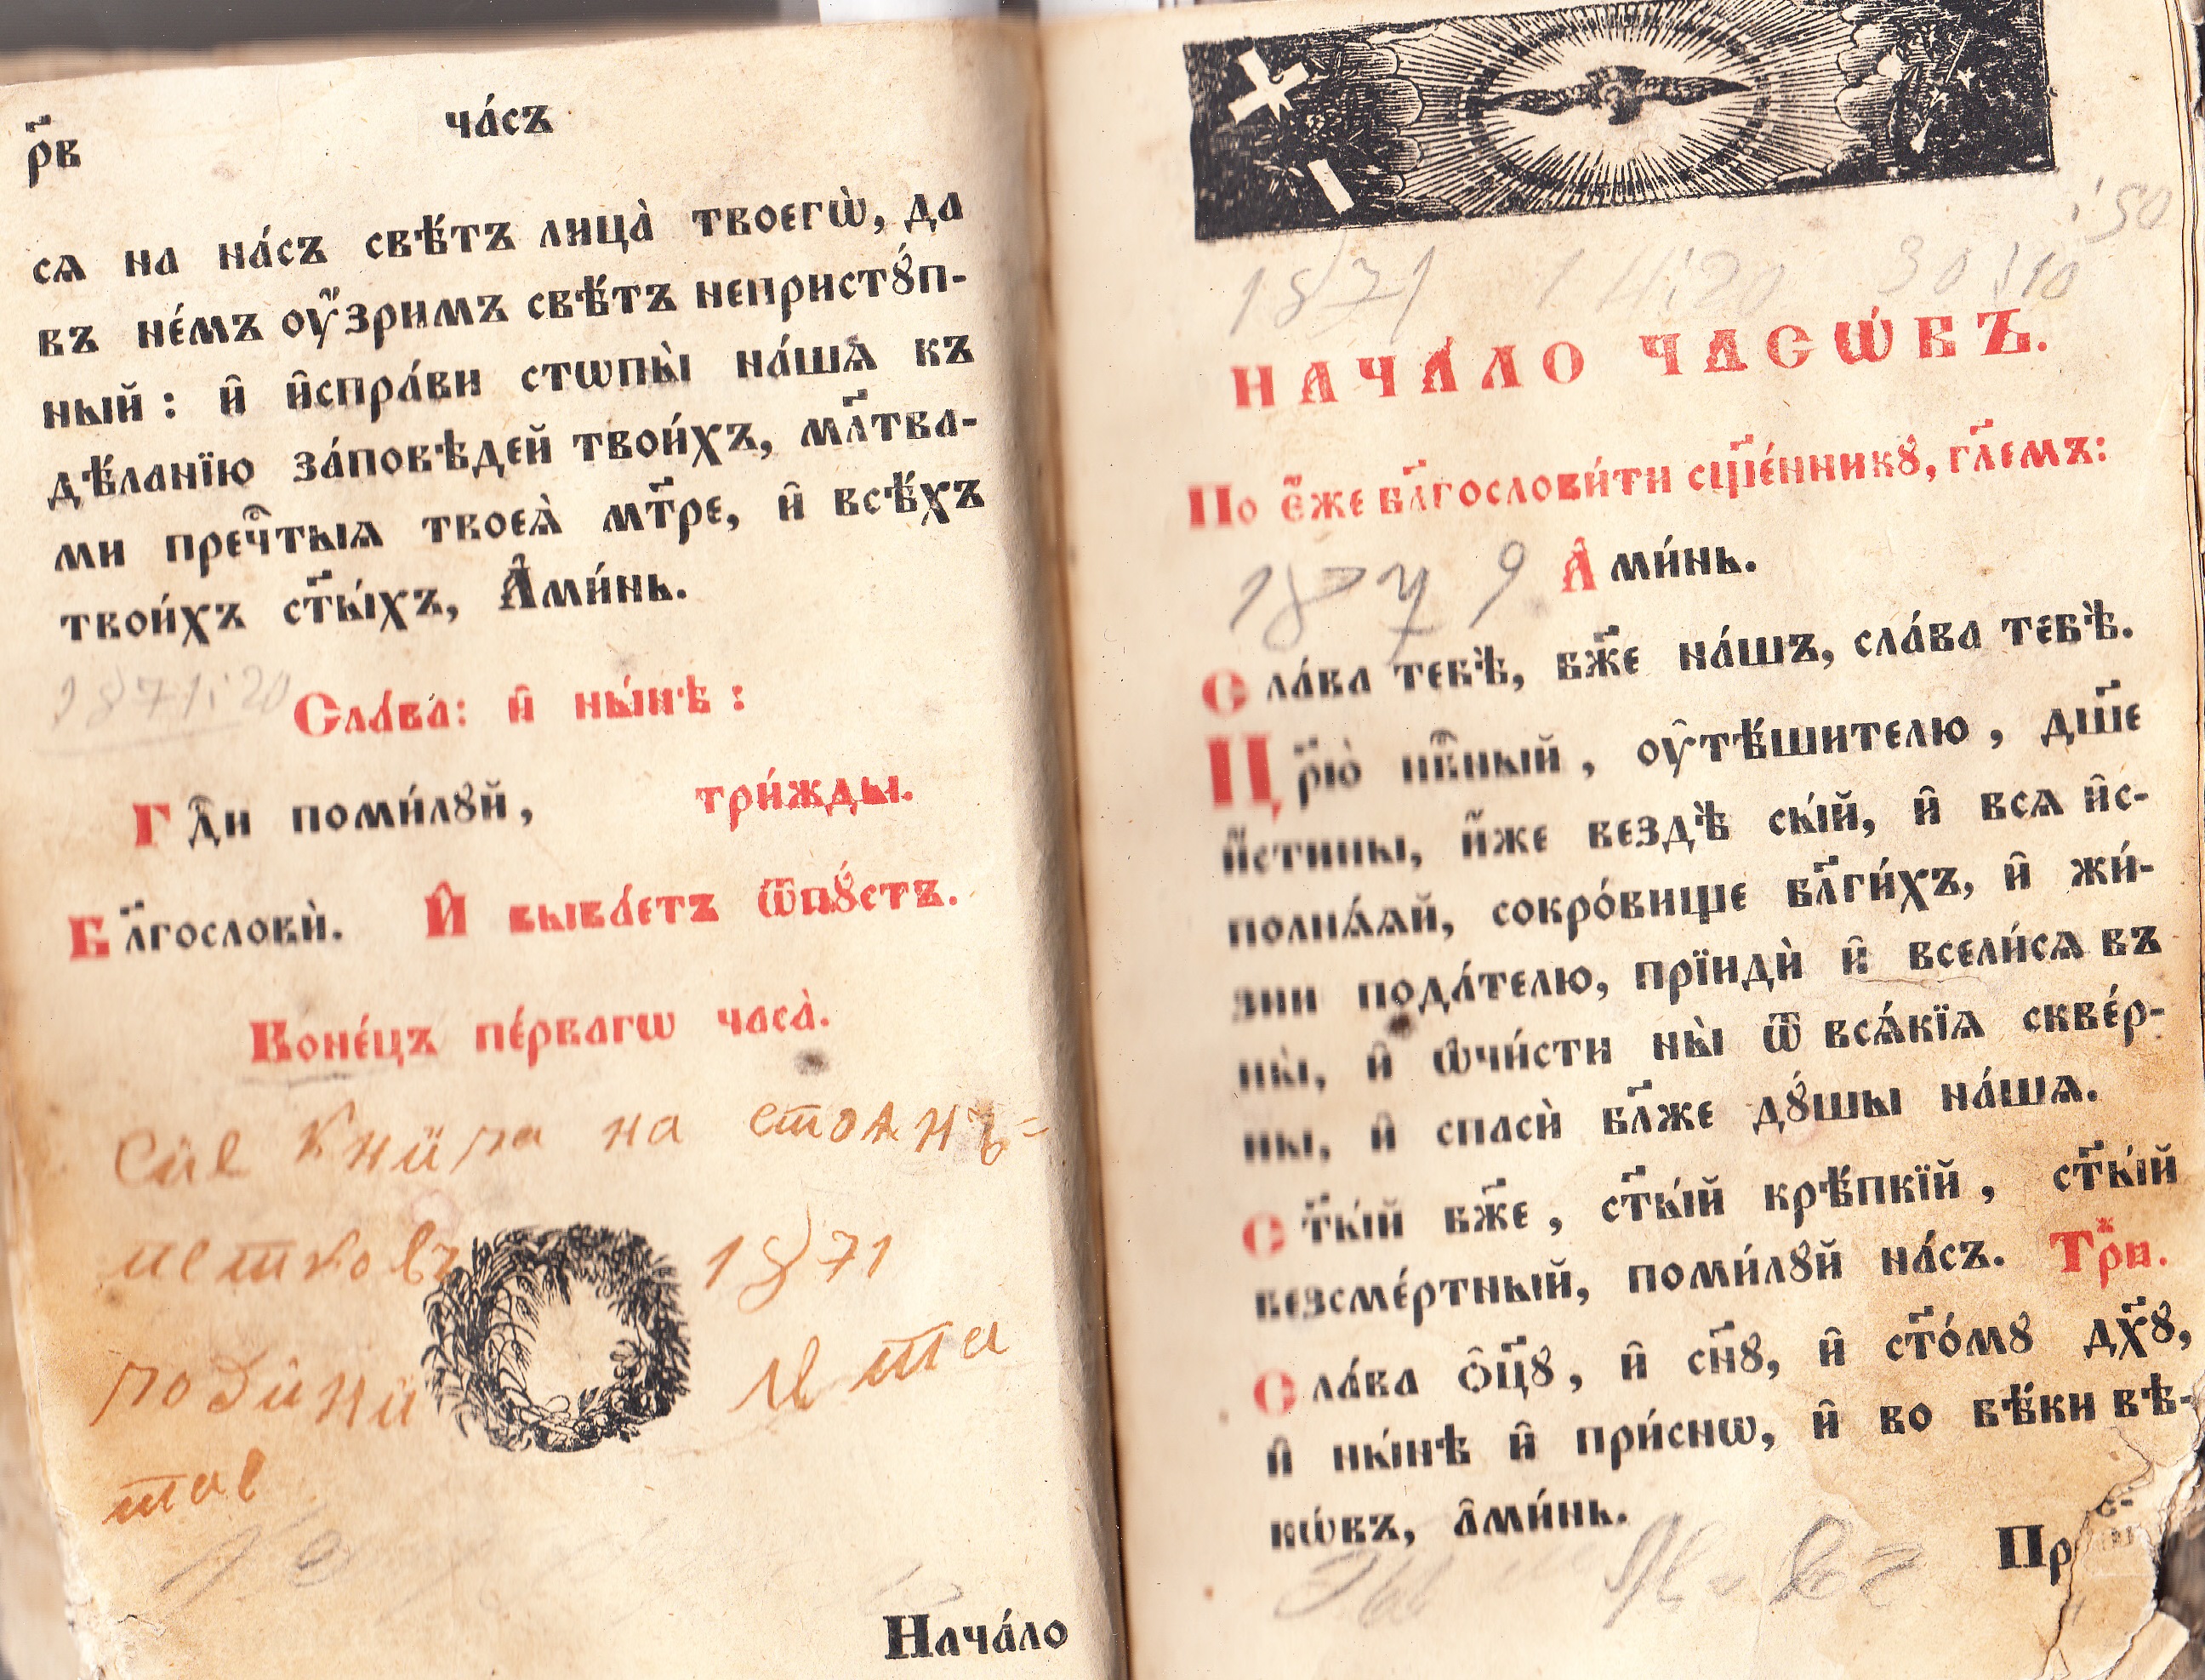 р҃в
ча́съ
сѧ на на́съ свѣ́тъ лица̀ твоегѡ̀, да
въ не́мъ оу҆́зримъ свѣ́тъ непристꙋ́п-
ный: и҆ и҆спра́ви стѡпы̀ на́шѧ къ
дѣ́ланїю за́повѣдей твои́хъ, мл҃тва-
ми пречⷭ҇тыѧ твоеѧ̀ мт҃ре, и҆ всѣ́хъ
твои́хъ ст҃ы́хъ, А҆ми́нь.
1871:20
Сла́ва: и҆ ны́нѣ:
Гдⷭ҇и поми́лꙋй, три́жды.
Бл҃гословѝ. И҆ быва́етъ ѿпꙋ́стъ.
Коне́цъ пе́рвагѡ часа̀.
Сие книга на стоянъ=
петковъ 1871
годині
лета
Нача́ло
1871 30
НАЧА́ЛО ЧАСѠ́ВЪ.
По є҆́же бл҃гослови́ти сщ҃е́нникꙋ, гл҃емъ:
А҆ми́нь.
Сла́ва тебѣ̀, бж҃е на́шъ, сла́ва тебѣ̀.
Цр҃ю̀ нбⷭ҇ный, оу҆тѣ́шителю, дш҃е
и҆́стины, и҆́же вездѣ̀ сы́й, и҆ всѧ и҆с-
полнѧ́ѧй, сокро́вище бл҃ги́хъ, и҆ жи́-
зни пода́телю, прїидѝ и҆ всели́сѧ въ
ны̀, и҆ ѡ҆чи́сти ны̀ ѿ всѧ́кїѧ скве́р-
ны, и҆ спасѝ бл҃же дꙋ́шы на́шѧ.
Ст҃ы́й бж҃е, ст҃ы́й крѣ́пкїй, ст҃ы́й
безсме́ртный, поми́лꙋй на́съ. Трⷤи.
Сла́ва ѻ҆ц҃ꙋ̀, и҆ сн҃ꙋ, и҆ ст҃о́мꙋ дх҃ꙋ,
и҆ ны́нѣ и҆ при́снѡ, и҆ во вѣ́ки вѣ-
кѡ́въ, а҆ми́нь.